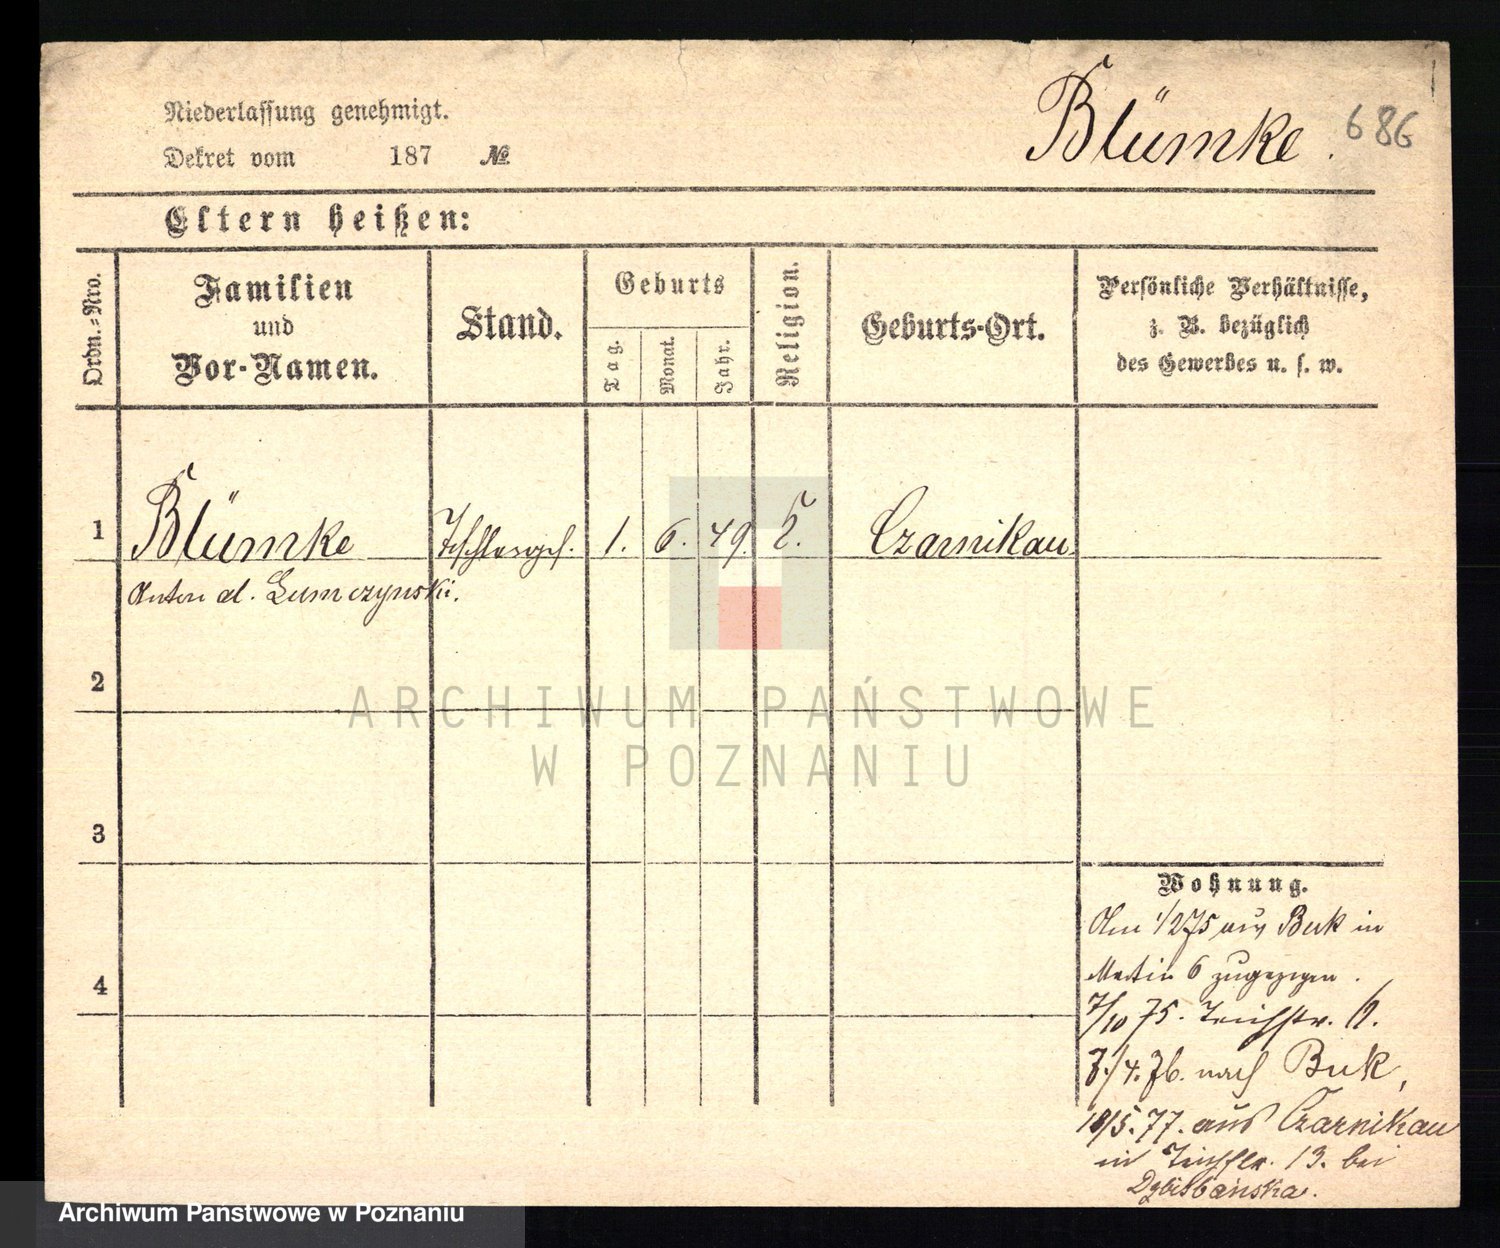 Niederlassung genehmigt.
Dekret vom 187 №
Blümke. 686
Eltern heißen:
Ordn.-Nro.
Familien
und
Vor-Namen.
Stand.
Geburts
Tag.
Monat.
Jahr.
Religion.
Geburts-Ort.
Persönliche Verhältnisse,
z. B. bezüglich
des Gewerbes u. s. w.
1 Blümke Tischlerges. 1. 6. 49. Czarnikau
Anton
2
ARCHIWUM PAŃSTWOWE
W POZNANIU
3
4
Wohnung.
Am 1/275 aus Buk in
Martin 6 zugezogen.
7/10 75. Teichstr.
/4. 76. nach Buk,
/5. 77. aus Czarnikau
in Teichstr. 13. bei
Archiwum Państwowe w Poznaniu